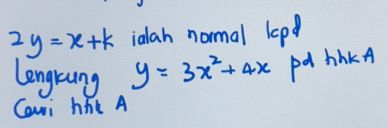 2y = x + k ialah normal kpd
Lengkung y = 3x² + 4x pd hhk A
Cari hhk A